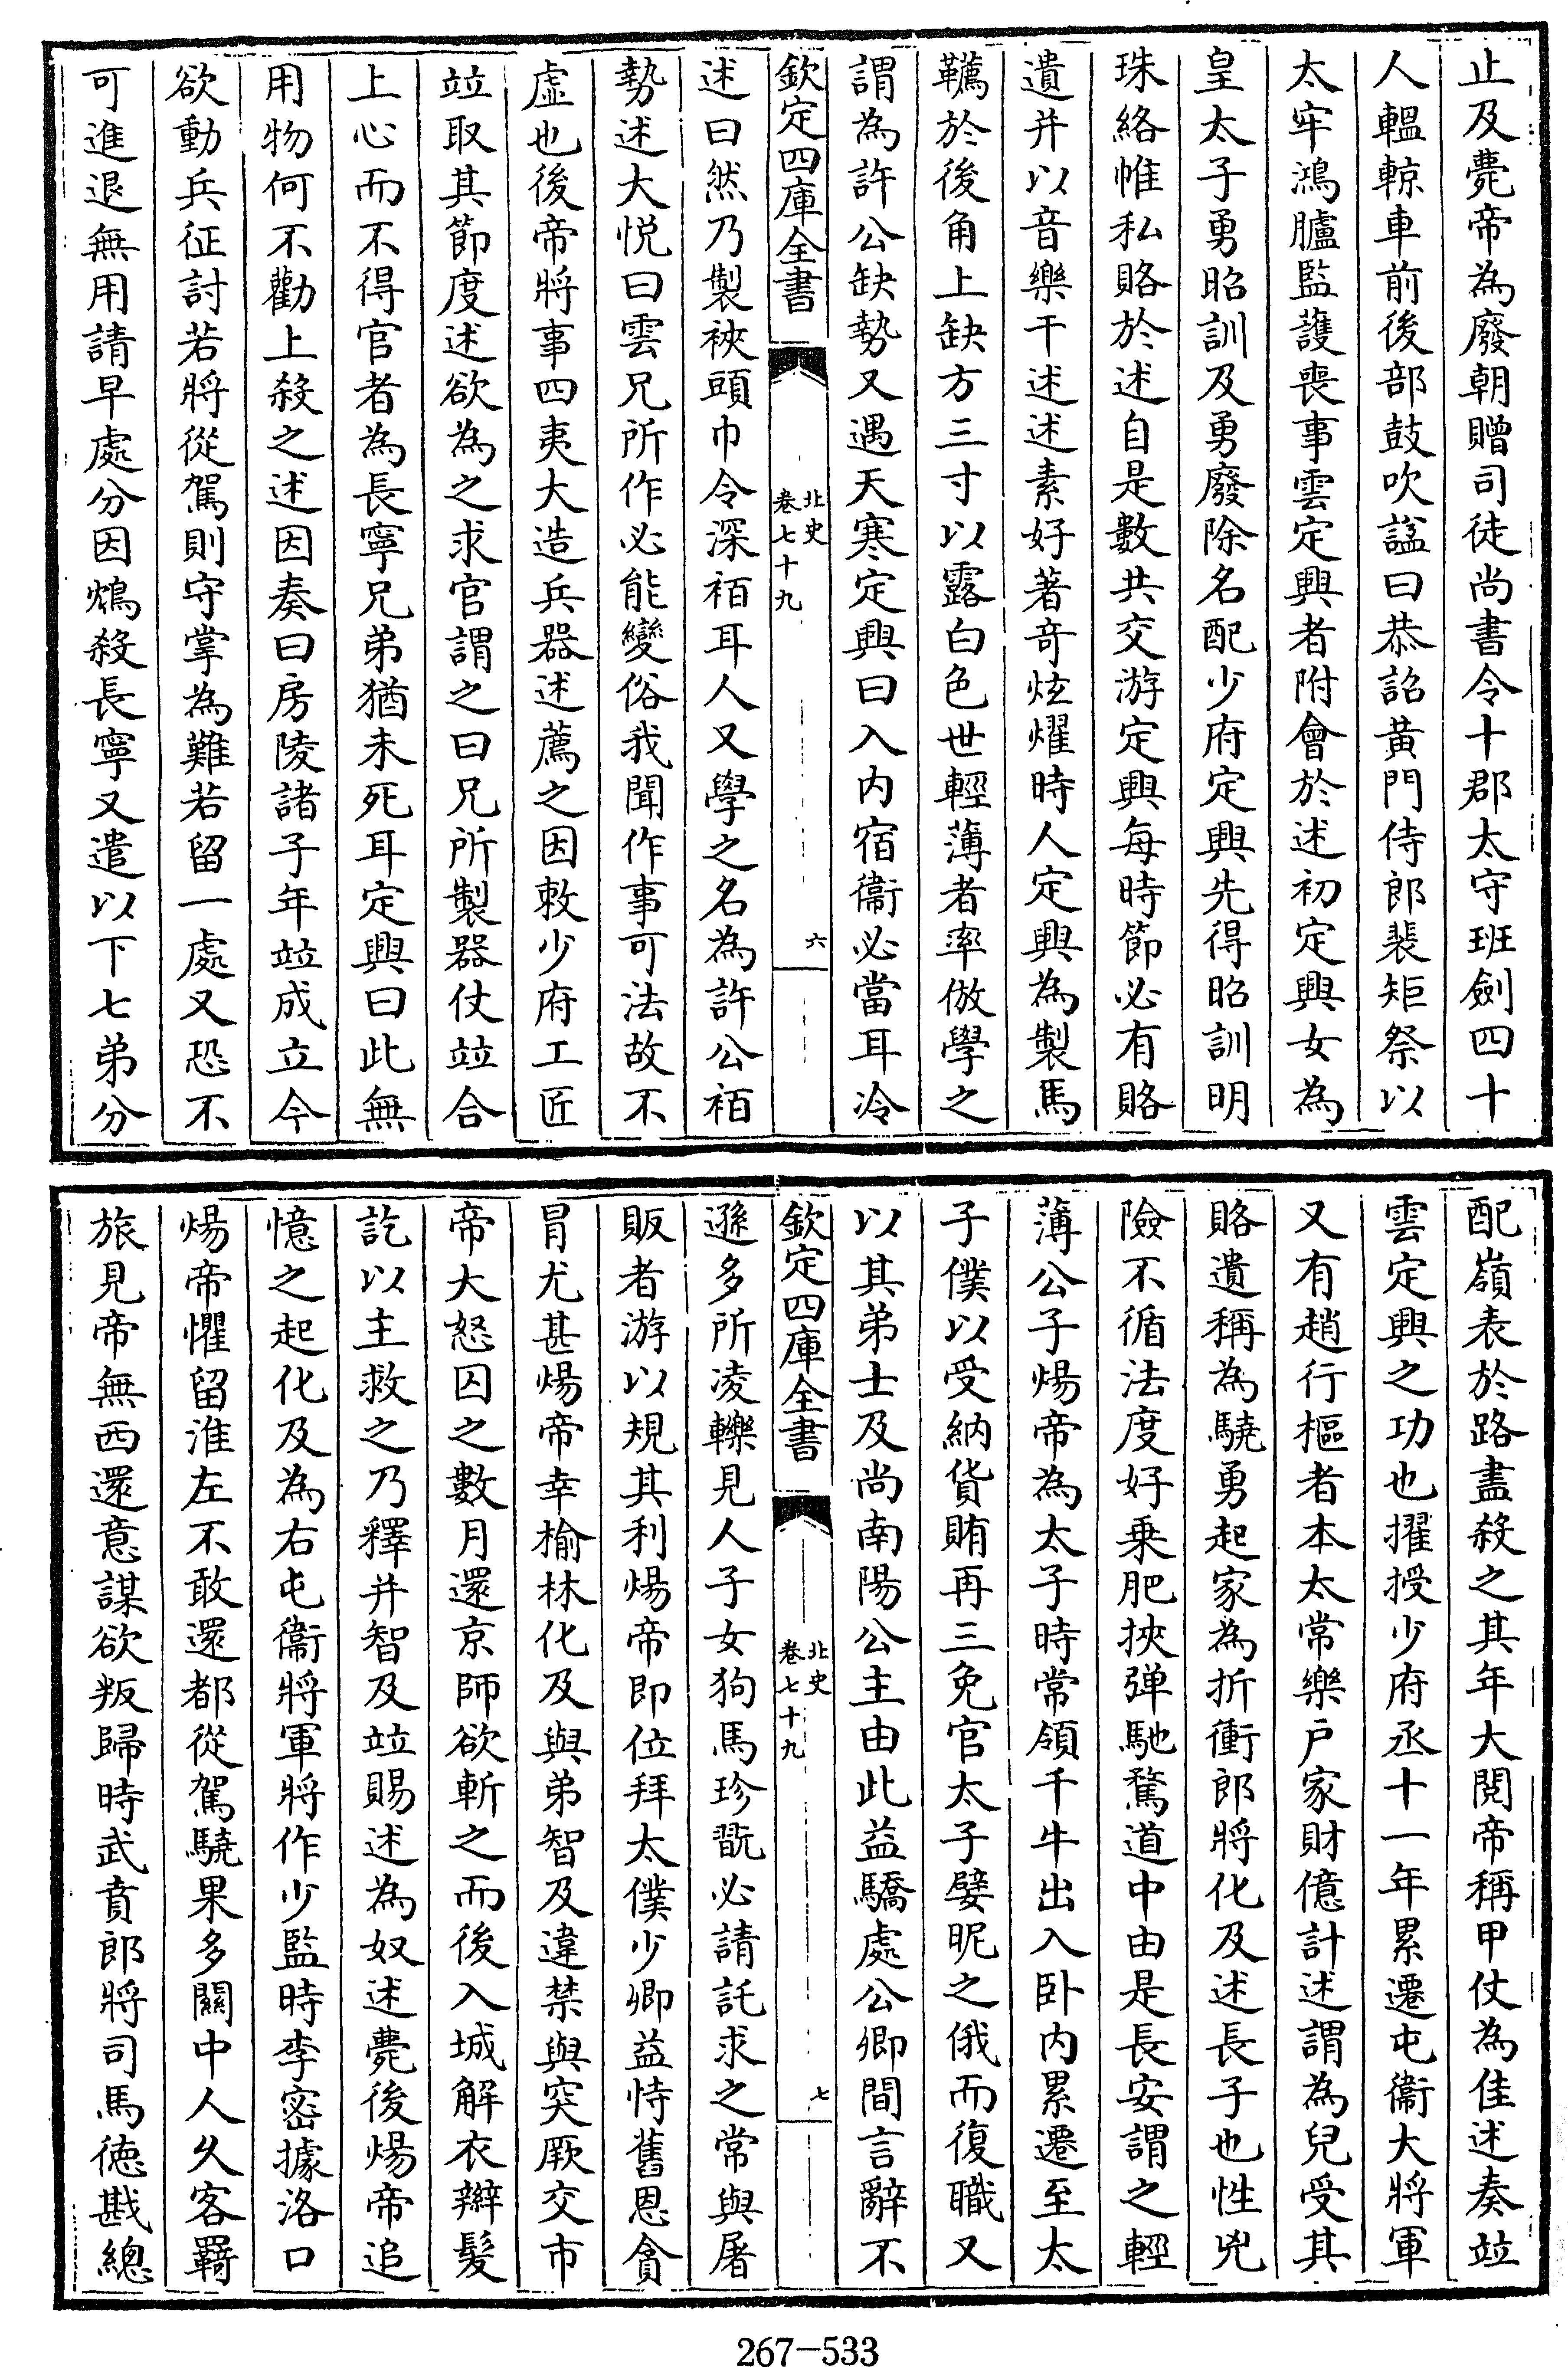 止及薨帝為廢朝贈司徒尚書令十郡太守班劍四十
人轀輬車前後部鼓吹諡曰恭詔黃門侍郎裴矩祭以
太牢鴻臚監護喪事雲定興者附會於述初定興女為
皇太子勇昭訓及勇廢除名配少府定興先得昭訓明
珠絡帷私賂於述自是數共交游定興每時節必有賂
遺并以音樂干述述素好著奇炫燿時人定興為製馬
韉於後角上缺方三寸以露白色世輕薄者率倣學之
謂為許公缺勢又遇天寒定興曰入内宿衞必當耳冷
欽定四庫全書
北史
卷七十九
六
述曰然乃製裌頭巾令深袹耳人又學之名為許公袹
勢述大悦曰雲兄所作必能變俗我聞作事可法故不
虛也後帝將事四夷大造兵器述薦之因敕少府工匠
竝取其節度述欲為之求官謂之曰兄所製器仗竝合
上心而不得官者為長寧兄弟猶未死耳定興曰此無
用物何不勸上殺之述因奏曰房陵諸子年竝成立今
欲動兵征討若將從駕則守掌為難若留一處又恐不
可進退無用請早處分因鴆殺長寧又遣以下七弟分
配嶺表於路盡殺之其年大閱帝稱甲仗為佳述奏竝
雲定興之功也擢授少府丞十一年累遷屯衞大將軍
又有趙行樞者本太常樂戶家財億計述謂為兒受其
賂遺稱為驍勇起家為折衝郎將化及述長子也性兇
險不循法度好乗肥挾弾馳騖道中由是長安謂之輕
薄公子煬帝為太子時常領千牛出入卧内累遷至太
子僕以受納貨賄再三免官太子嬖昵之俄而復職又
以其弟士及尚南陽公主由此益驕處公卿間言辭不
欽定四庫全書
北史
卷七十九
七
遜多所凌轢見人子女狗馬珍翫必請託求之常與屠
販者游以規其利煬帝即位拜太僕少卿益恃舊恩貪
冒尤甚煬帝幸榆林化及與弟智及違禁與突厥交市
帝大怒囚之數月還京師欲斬之而後入城解衣辮髮
訖以主救之乃釋并智及竝賜述為奴述薨後煬帝追
憶之起化及為右屯衞將軍將作少監時李密據洛口
煬帝懼留淮左不敢還都從駕驍果多關中人久客羇
旅見帝無西還意謀欲叛歸時武賁郎將司馬徳戡總
267-533